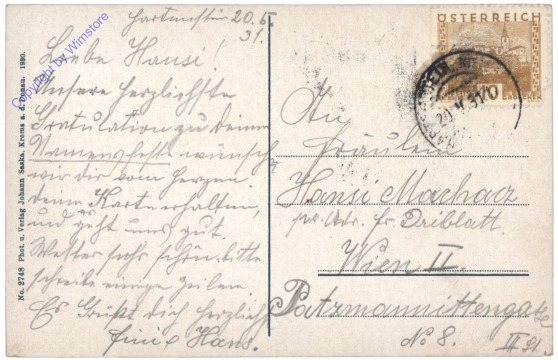 Hartenstein 20.5.
31.
Liebe Hansi!
Unsere herzlichste
Gratulation zu Deinem
Namensfeste wünschen
wir dir vom Herzen
deine Karte erhalten,
und es geht uns gut.
Wetter sehr schön. bitte
schreibe einige Zeilen.
Es Grüßt dich herzlich
Fini & Hans.
No. 2748 Phot. u. Verlag Johann Saska, Krems a. d. Donau. 1930.
Copyright by Wimstore
ÖSTERREICH
GROSCHEN
20.V.31
An
Fräulein
Hansi Macharz
per Adr. Fr. Driblatt
Wien II.
Patzmannittengasse
No 8. III St.